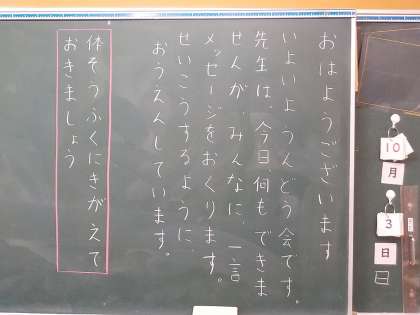 おはようございます
いよいよ うんどう会です。
先生は、今日、何も できま
せんが、みんなに、一言
メッセージをおくります。
せいこうするように、
おうえんしています。
体そうふくにきがえて
おきましょう
10
月
3
日
日